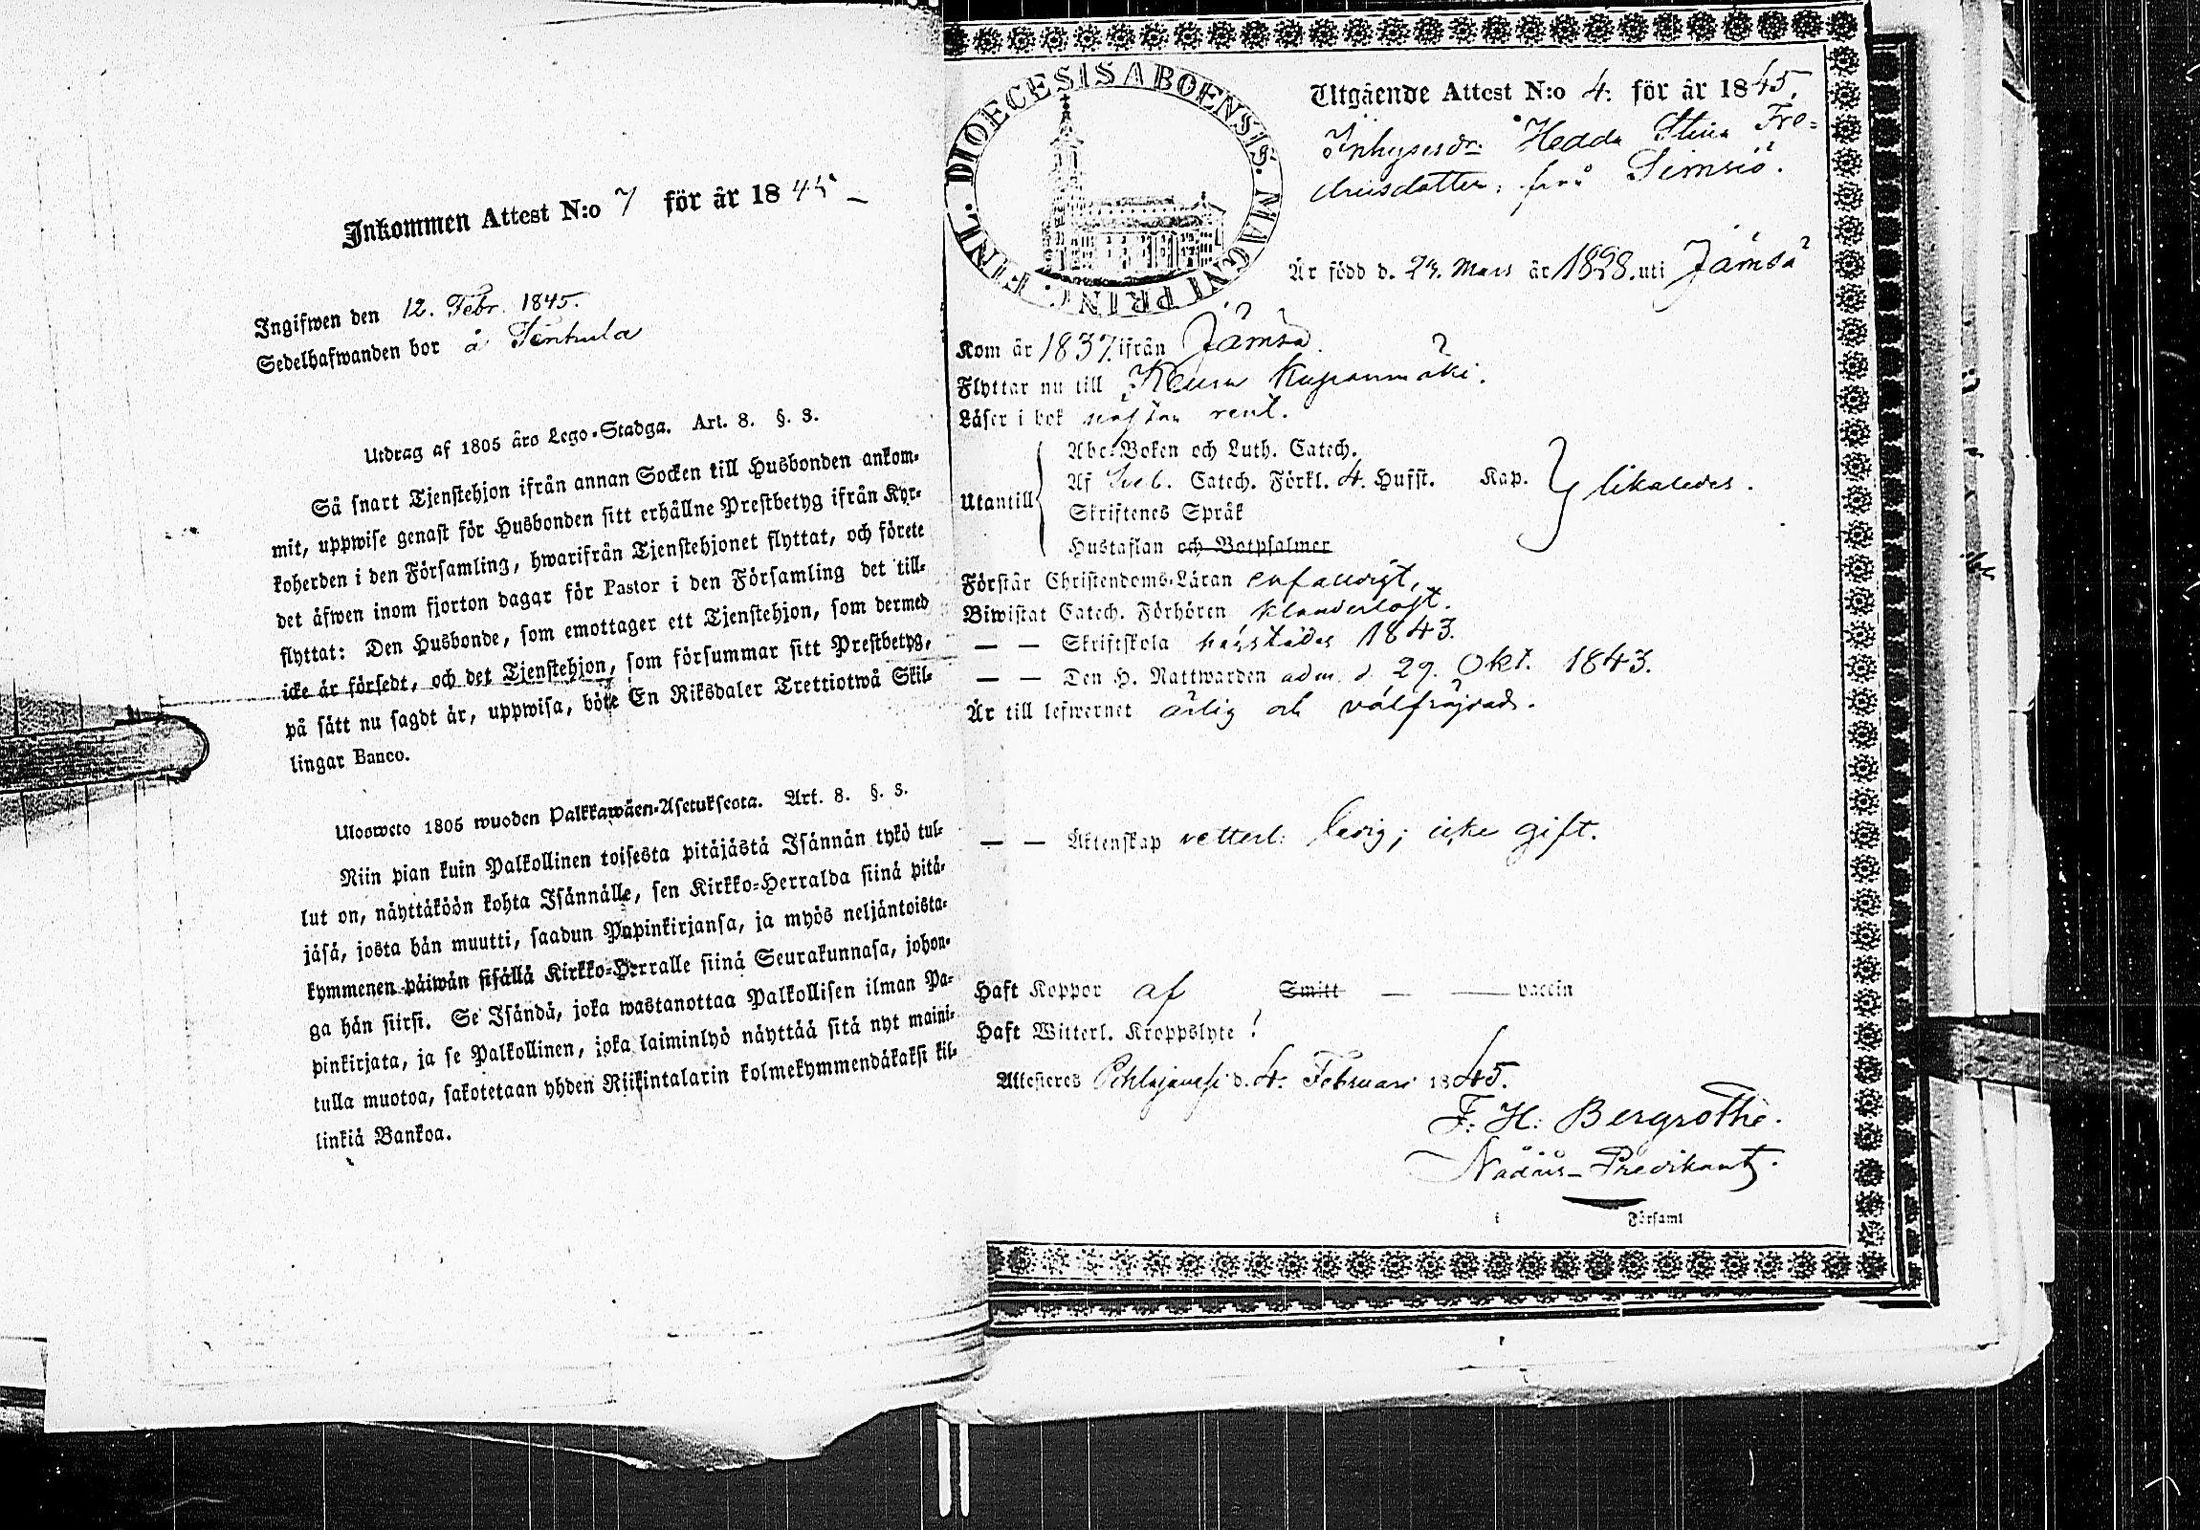 Inkommen Attest N:o 7 för år 1845
Ingifwen den 12. Febr. 1845.
Sedelhafwanden bor å
Utdrag af 1805 års Lego-Stadga. Art. 8. §. 3.
Så snart Tjenstehjon ifrån annan Socken till Husbonden ankom-
mit, uppwise genast för Husbonden sitt erhållne Prestbetyg ifrån Kyr-
koherden i den Församling, hwarifrån Tjenstehjonet flyttat, och förete
det äfwen inom fjorton dagar för Pastor i den Församling det till-
flyttat: Den Husbonde, som emottager ett Tjenstehjon, som dermed
icke är försedt, och det Tjenstehjon, som försummar sitt Prestbetyg,
på sätt nu sagdt är, uppwisa, böte En Riksdaler Trettiotwå Skil-
lingar Banco.
Ulosweto 1805 wuoden Palkkawäen-Asetuksesta. Art. 8. §. 3.
Niin pian kuin Palkollinen toisesta pitäjästä Isännän tykö tul-
lut on, näyttäköön kohta Isännälle, sen Kirkko-Herralda siinä pitä-
jäsä, josta hän muutti, saadun Papinkirjansa, ja myös neljäntoista-
kymmenen päiwän sisällä Kirkko-Herralle siinä Seurakunnasa, johon-
ga hän siirsi. Se Isändä, joka wastanottaa Palkollisen ilman Pa-
pinkirjata, ja se Palkollinen, joka laiminlyö näyttää sitä nyt maini-
tulla muotoa, sakotetaan yhden Riikintalarin kolmekymmendäkaksi kil-
linkiä Bankoa.
FINL. DIOECESIS ABOENSIS. MAGNI PRINC.
Utgående Attest N:o 4. för år 1845.
Inhysesdr: Hedda Stina Fre-
driksdotter, från Simsiö.
Är född d. 23. Mars år 1828. uti Jämsä
Kom år 1837. ifrån Jämsä.
Flyttar nu till Keuru
Läser i bok nästan rent.
Abc-Boken och Luth. Catech.
Utantill Af Sveb. Catech. Förkl. 4. Hufst. Kap. likaledes.
Skriftenes Språk
Hustaflan och Botpsalmer
Förstår Christendoms-Läran enfaldigt,
Biwistat Catech. Förhören klanderlöst.
— — Skriftskola härstädes 1843.
— — Den H. Nattwarden adm. d. 29. Okt. 1843.
Är till lefwernet ärlig och välfräjdad.
— — Äktenskap vetterl. ledig; icke gift.
Haft Koppor af Smitt — — vaccin
Haft Witterl. Kroppslyte
Attesteres Pihlajavesi d. 4. Februari 1845.
F. H. Bergrothe.
Nådårs-Predikant.
i Församl